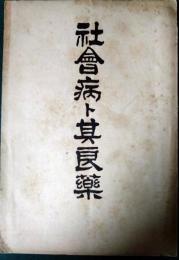 社會病ト其良藥